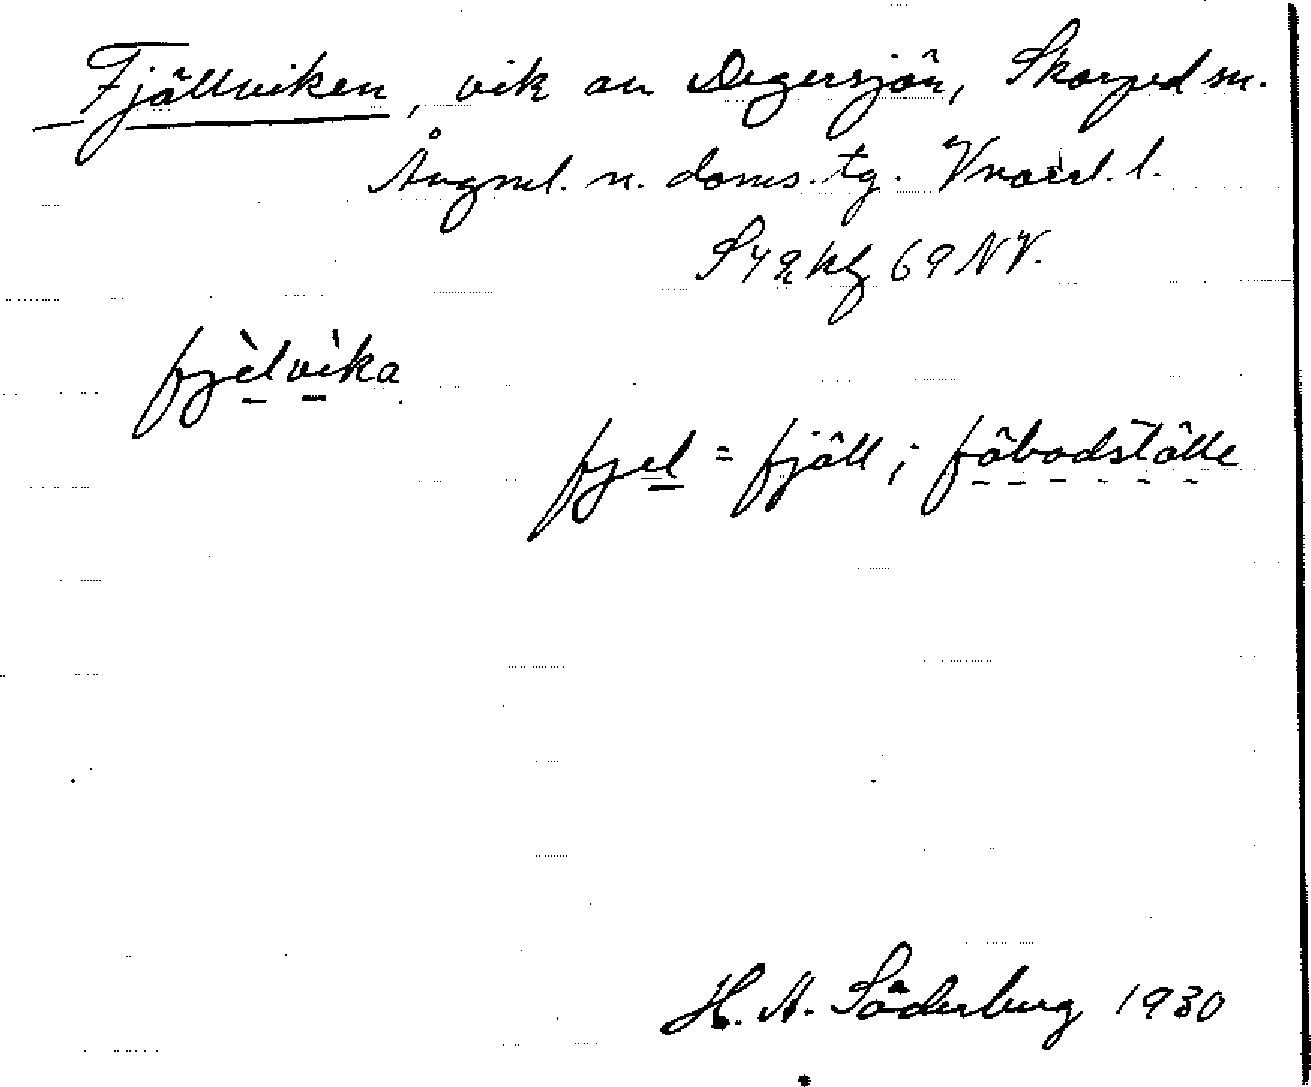 Fjällviken, vik av Degersjön, Skorped sn.
Ångml. n. doms. tg. Vnorrl. l.
S42kg 69 NV.
fjèlvìka
fjel = fjäll; fäbodställe
H. A. Söderberg 1930